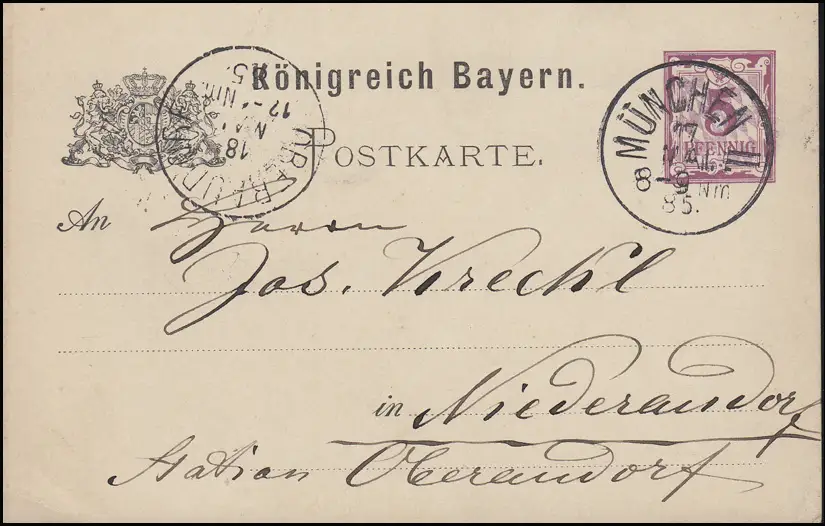 Königreich Bayern.
POSTKARTE.
5
PFENNIG
MÜNCHEN II
17
MAI
8-9 Nm
85.
18
MAI
12-1 Nm.
85.
An Herrn
Jos. Kreckl
in Niederaudorf
Station Oberaudorf